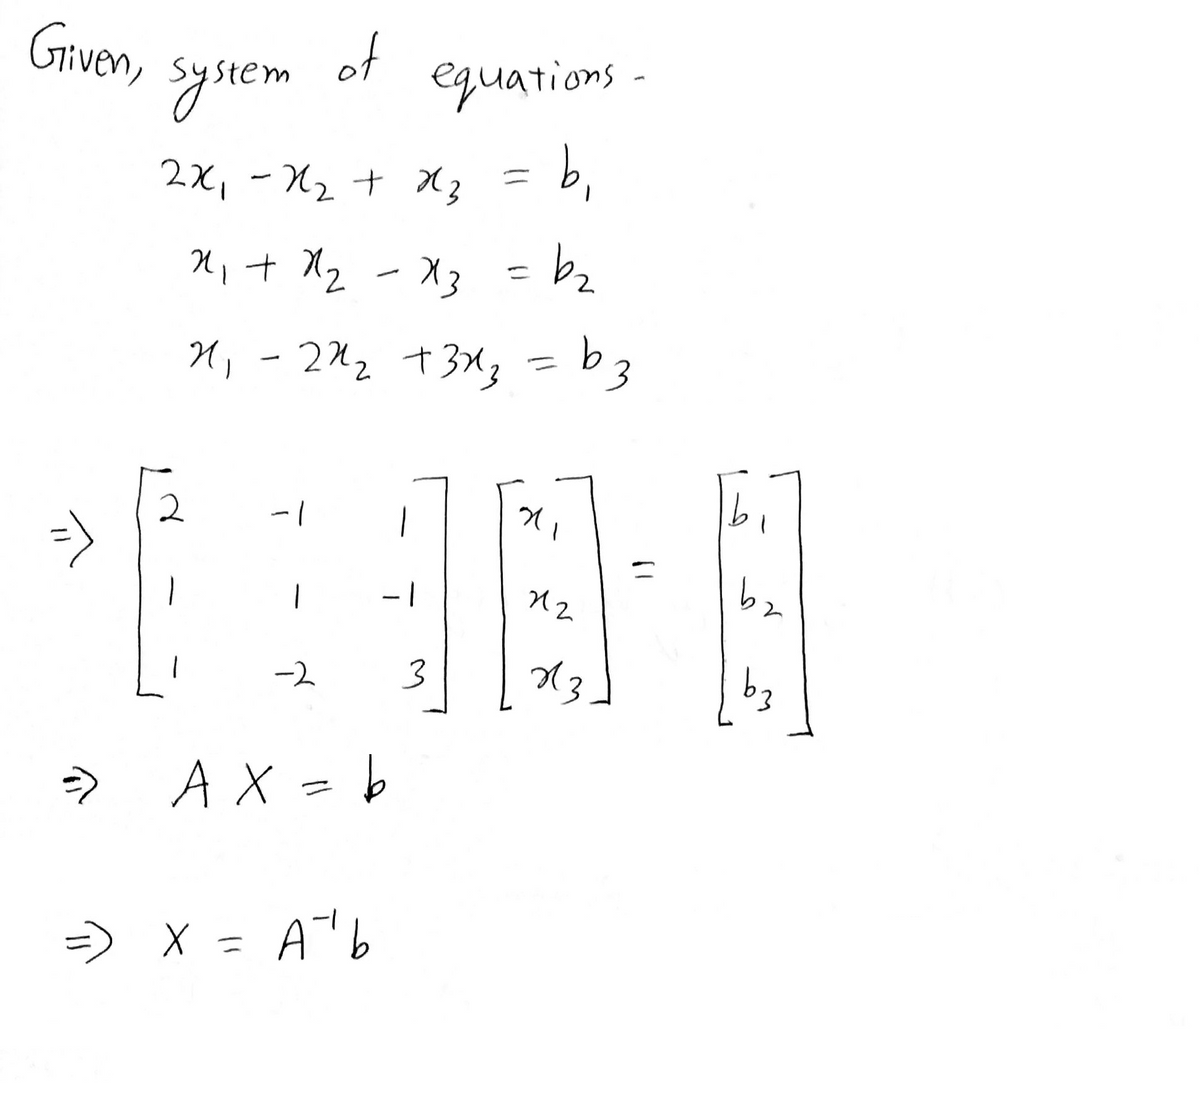 Given, system of equations -
2x₁ - x₂ + x₃ = b₁
x₁ + x₂ - x₃ = b₂
x₁ - 2x₂ + 3x₃ = b₃
=> [2 -1 1] [x₁] = [b₁]
[1 1 -1] [x₂] [b₂]
[1 -2 3] [x₃] [b₃]
=> A X = b
=> X = A⁻¹b